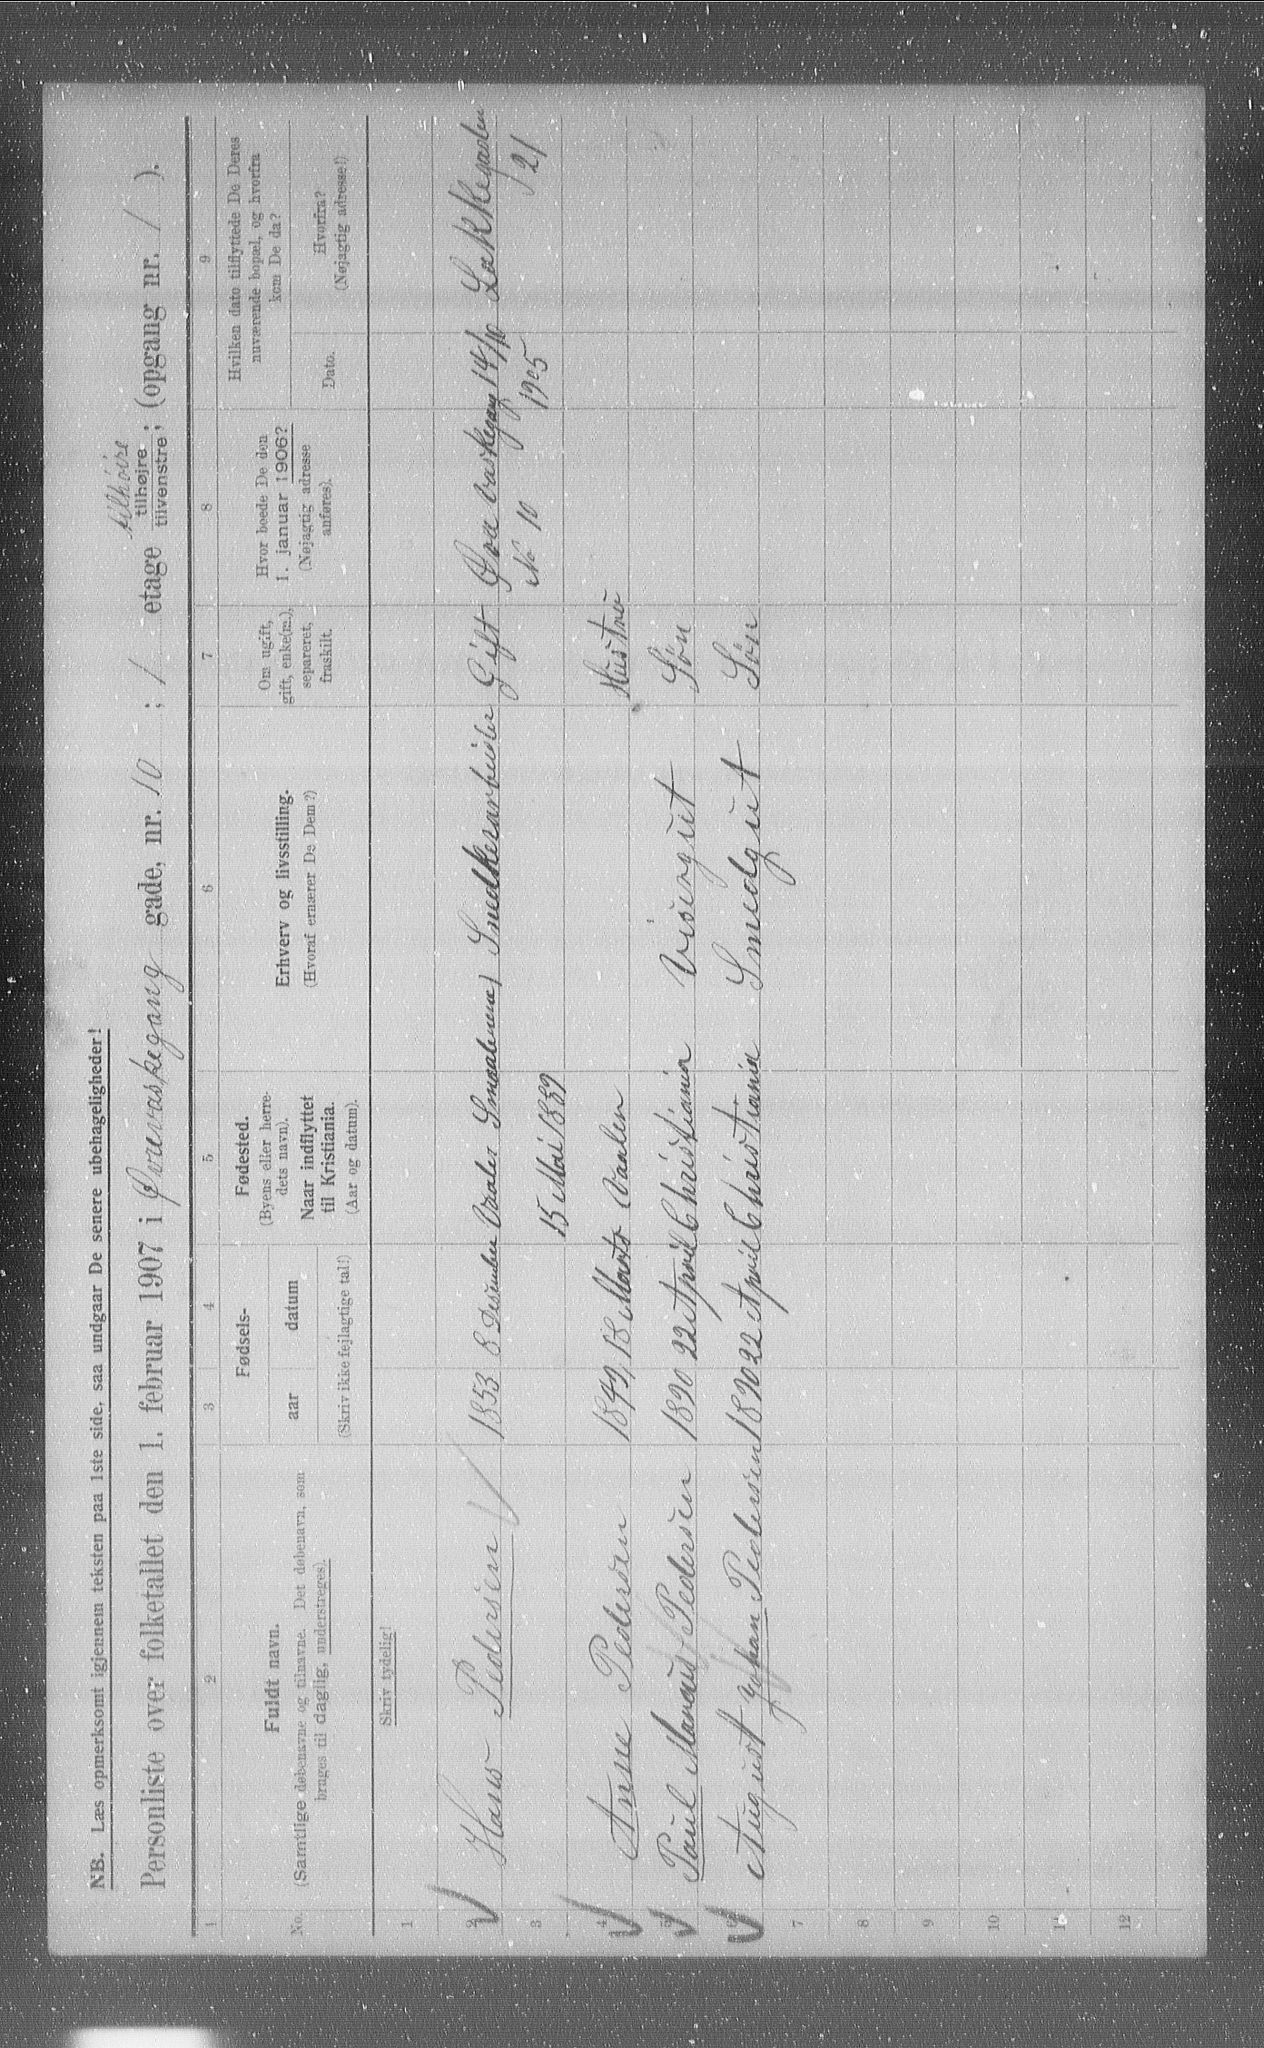 NB. Læs opmerksomt igjennem teksten paa 1ste side, saa undgaar De senere ubehageligheder!
tilhöire
Personliste over folketallet den 1. februar 1907 i Övrevaskegang gade, nr. 10 ; 1 etage tilhøjre tilvenstre; (opgang nr. 1 ).
1 2 3 4 5 6 7 8 9
No.
Fuldt navn.
(Samtlige døbenavne og tilnavne. Det døbenavn, som
bruges til daglig, understreges).
Fødsels-
aar datum
(Skriv ikke fejlagtige tal!)
Fødested.
(Byens eller herre-
dets navn).
Naar indflyttet
til Kristiania.
(Aar og datum).
Erhverv og livsstilling.
(Hvoraf ernærer De Dem?)
Om ugift,
gift, enke(m.),
separeret,
fraskilt.
Hvor boede De den
1. januar 1906?
(Nøjagtig adresse
anføres).
Hvilken dato tilflyttede De Deres
nuværende bopæl, og hvorfra
kom De da?
Dato.
Hvorfra?
(Nøjagtig adresse!)
Skriv tydelig!
1
2 Hans Pedersen 1853 8 Desember Vaaler Smaalenene Snedkerarbeider Gift Övre Vaskegang 14/10 Lakkegaden
3 15 Mai 1889 No 10 1905 21
4 Anne Pedersen 1849 18 Marts Vaalen Hustru
5 Paul Marcus Pedersen 1890 22 April Christiania Visergut Sön
6 August Johan Pedersen 1890 22 April Christiania Smedgut Sön
7
8
9
10
11
12